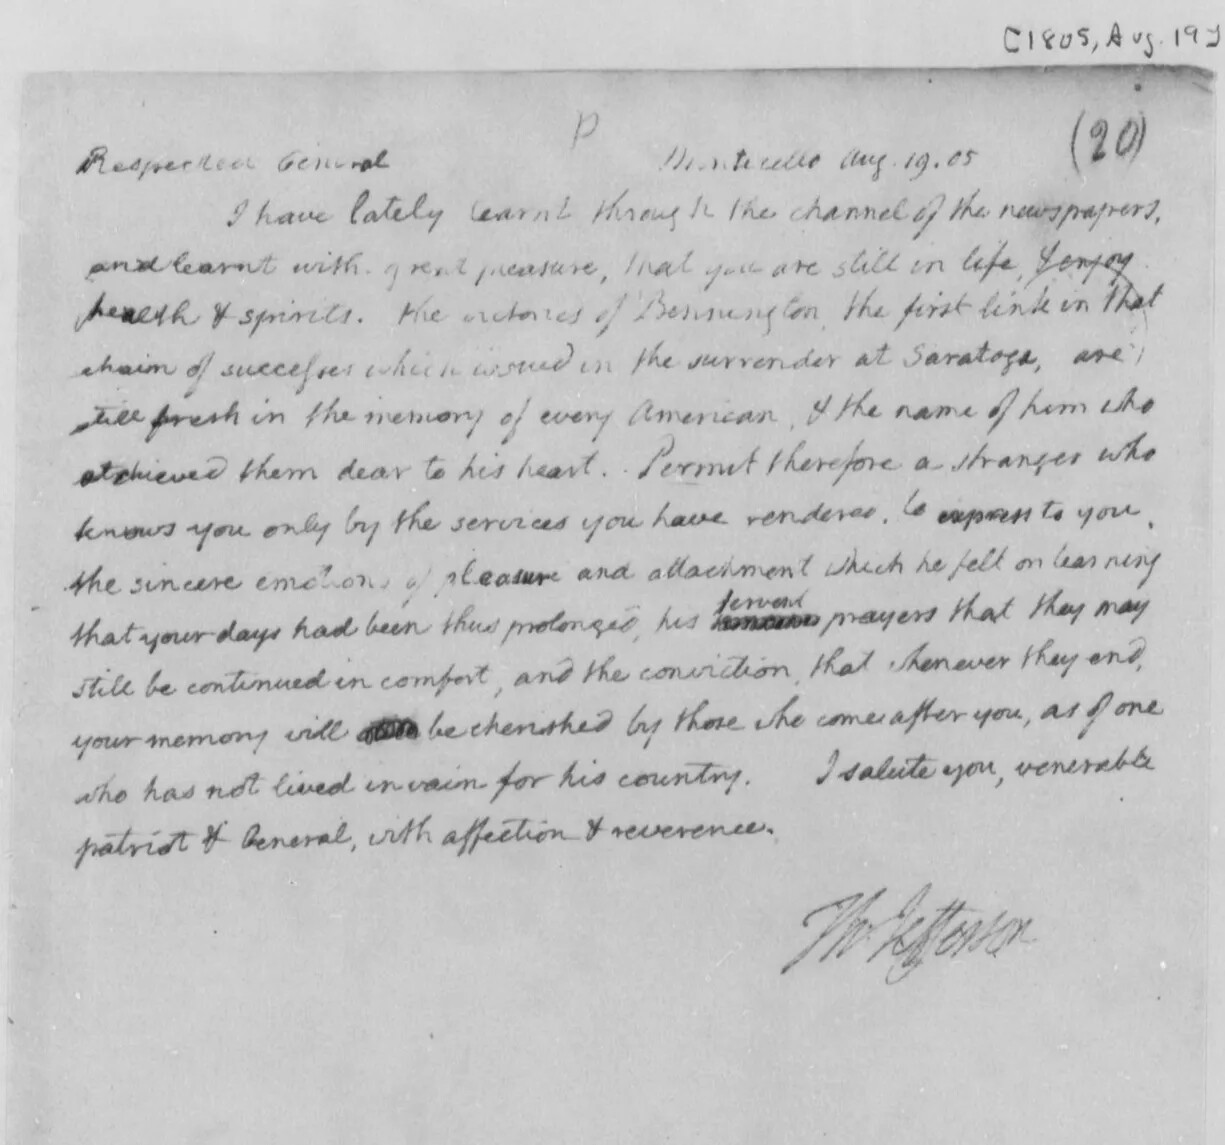 [1805, Aug. 19]
P
(20)
Respected General Monticello Aug. 19. 05
I have lately learnt through the channel of the newspapers,
and learnt with great pleasure, that you are still in life, & enjoy
health & spirits. the victories of Bennington, the first link in that
chain of successes which issued in the surrender at Saratoga, are
still fresh in the memory of every American, & the name of him who
atchieved them dear to his heart. Permit therefore a stranger who
knows you only by the services you have rendered, to express to you
the sincere emotions of pleasure and attachment which he felt on learning
that your days had been thus prolonged, his fervent prayers that they may
still be continued in comfort, and the conviction that whenever they end,
your memory will be cherished by those who come after you, as of one
who has not lived in vain for his country. I salute you, venerable
patriot & General, with affection & reverence.
Th Jefferson